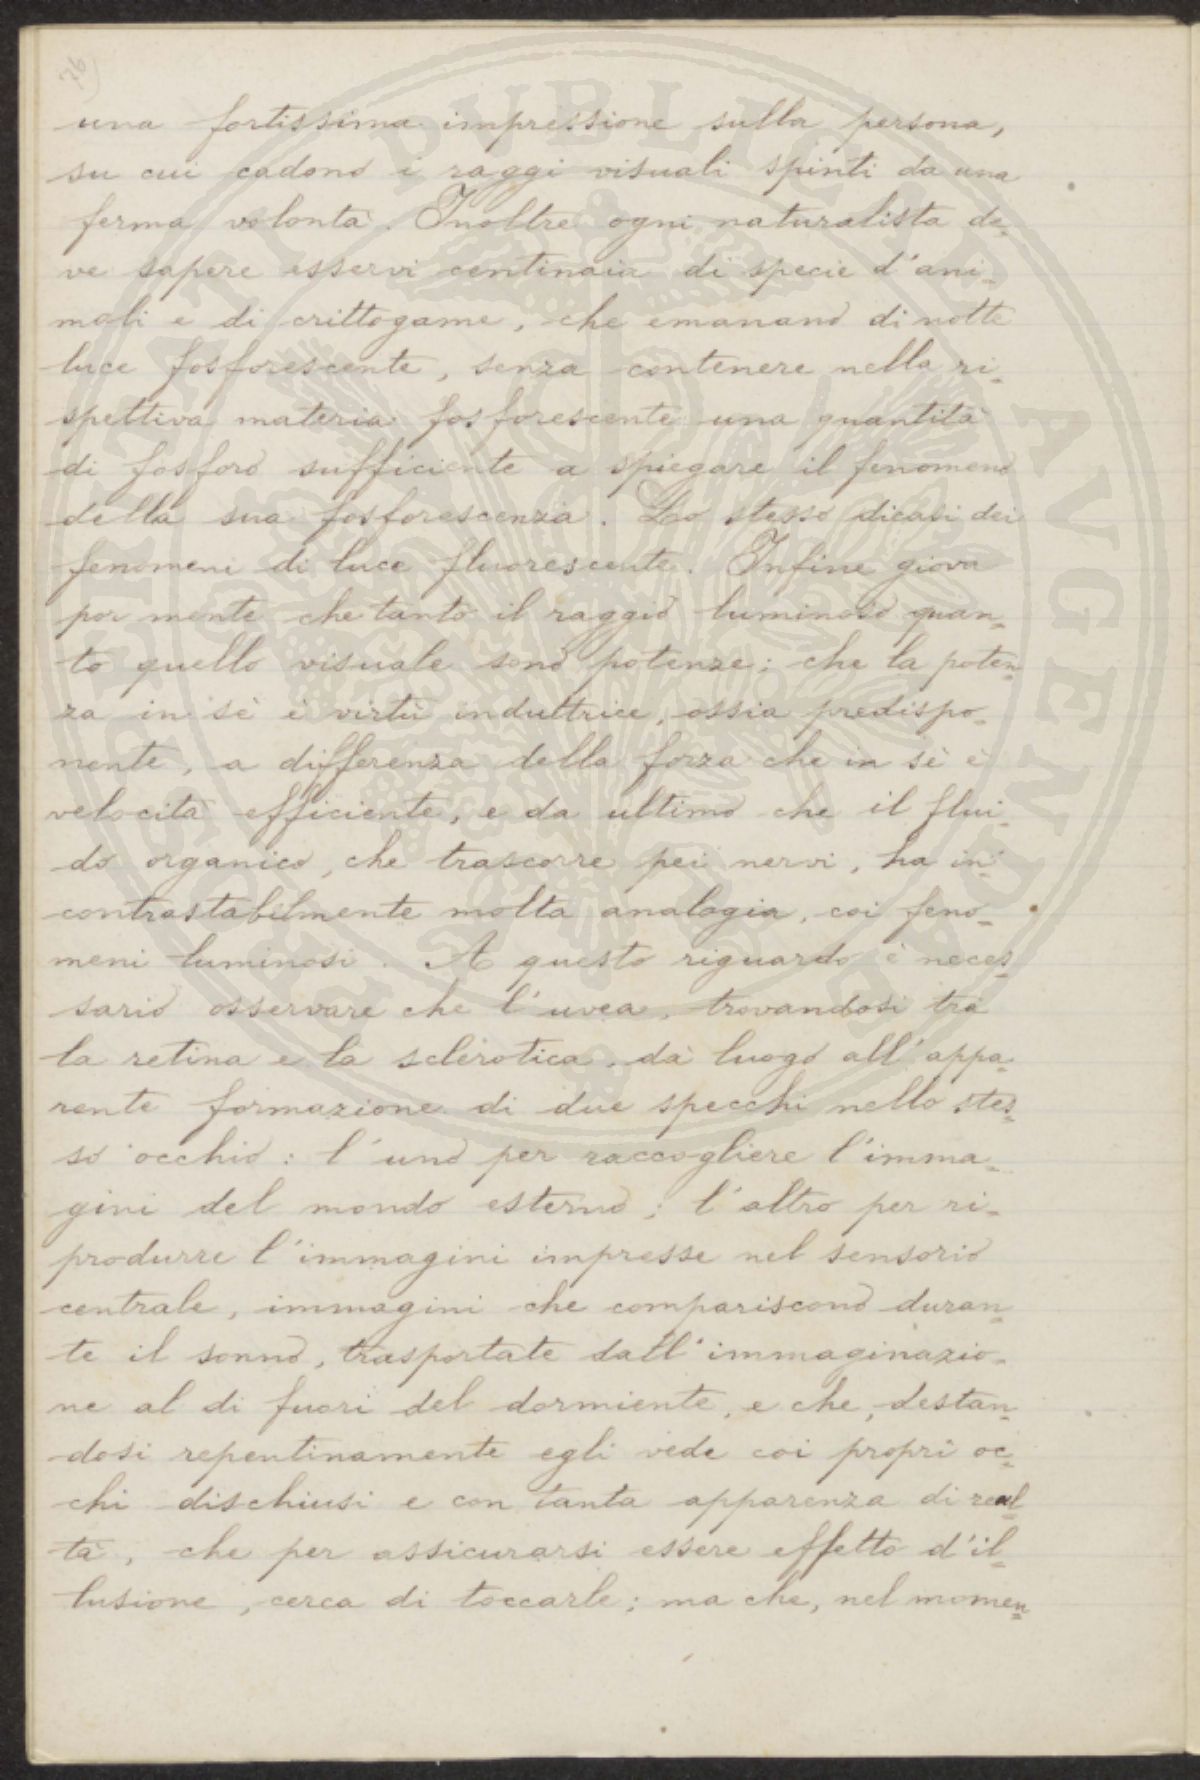 36)
una fortissima impressione sulla persona,
su cui cadono i raggi visuali spinti da una
ferma volontà. Inoltre ogni naturalista de-
ve sapere esservi centinaia di specie d'ani-
mali e di crittogame, che emanano di notte
luce fosforescente, senza contenere nella ri-
spettiva materia fosforescente una quantità
di fosforo sufficiente a spiegare il fenomeno
della sua fosforescenza. Lo stesso dicasi dei
fenomeni di luce fluorescente. Infine giova
por mente che tanto il raggio luminoso quan-
to quello visuale sono potenze; che la poten-
za in sè è virtù induttrice, ossia predispo-
nente, a differenza della forza che in sè è
velocità efficiente, e da ultimo che il flui-
do organico, che trascorre pei nervi, ha in-
contrastabilmente molta analogia, coi feno-
meni luminosi. A questo riguardo è neces-
sario osservare che l'uvea, trovandosi tra
la retina e la sclerotica, dà luogo all'appa-
rente formazione di due specchi nello stes-
so occhio: l'uno per raccogliere l'imma-
gini del mondo esterno; l'altro per ri-
produrre l'immagini impresse nel sensorio
centrale, immagini che compariscono duran-
te il sonno, trasportate dall'immaginazio-
ne al di fuori del dormiente, e che, destan-
dosi repentinamente egli vede coi propri oc-
chi dischiusi e con tanta apparenza di real-
tà, che per assicurarsi essere effetto d'il-
lusione, cerca di toccarle; ma che, nel momen-